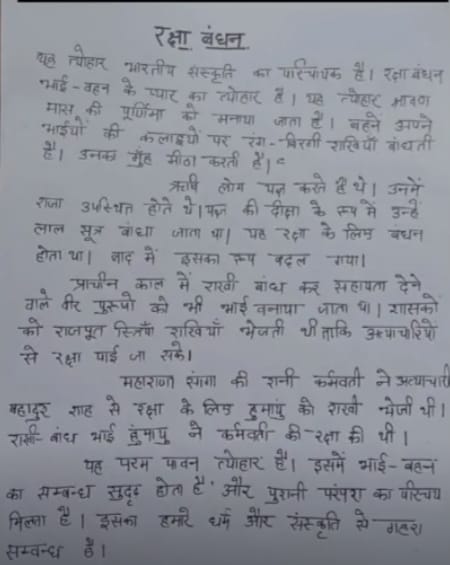 रक्षा बंधन
यह त्योहार भारतीय संस्कृति का परिचायक है। रक्षा बंधन
भाई-बहन के प्यार का त्योहार है। यह त्योहार श्रावण
मास की पूर्णिमा को मनाया जाता है। बहनें अपने
भाईयों की कलाइयों पर रंग-बिरंगी राखियाँ बांधती
है। उनका मुँह मीठा करती है।
ऋषि लोग यज्ञ करते हैं थे। उनमें
राजा उपस्थित होते थे। यज्ञ की दीक्षा के रूप में उन्हें
लाल सूत्र बांधा जाता था। यह रक्षा के लिए बंधन
होता था। बाद में इसका रूप बदल गया।
प्राचीन काल में राखी बांध कर सहायता देने
वाले वीर पुरुषो को भी भाई बनाया जाता था। शासकों
को राजपूत स्त्रियाँ राखियाँ भेजती थी ताकि अत्याचारियों
से रक्षा पाई जा सके।
महाराणा संगगा की रानी कर्मवती ने अत्याचारी
बहादुर शाह से रक्षा के लिए हुमायु को राखी भेजी थी।
राखी-बांध भाई हुमायु ने कर्मवती की रक्षा की थी।
यह परम पावन त्योहार है। इसमें भाई-बहन
का सम्बन्ध सुदृढ़ होता है और पुरानी परंपरा का परिचय
मिलता है। इसका हमारे धर्म और संस्कृति से गहरा
सम्बन्ध है।